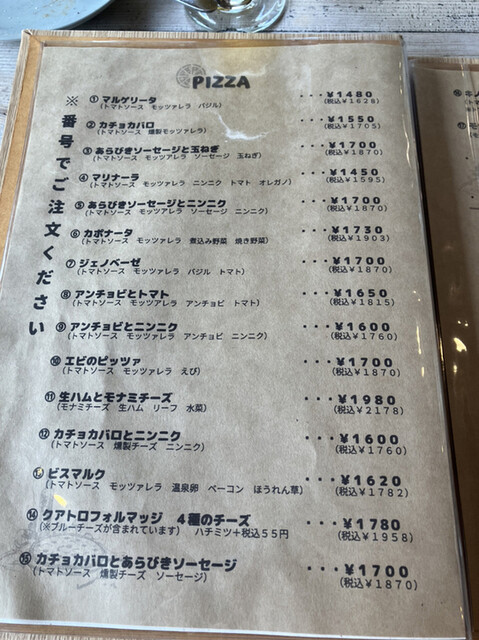 PIZZA
※番号でご注文ください
① マルゲリータ ・・・¥1480
(トマトソース モッツァレラ バジル) (税込¥1628)
② カチョカバロ ・・・¥1550
(トマトソース 燻製モッツァレラ) (税込¥1705)
③ あらびきソーセージと玉ねぎ ・・・¥1700
(トマトソース モッツァレラ ソーセージ 玉ねぎ) (税込¥1870)
④ マリナーラ ・・・¥1450
(トマトソース モッツァレラ ニンニク トマト オレガノ) (税込¥1595)
⑤ あらびきソーセージとニンニク ・・・¥1700
(トマトソース モッツァレラ ソーセージ ニンニク) (税込¥1870)
⑥ カポナータ ・・・¥1730
(トマトソース モッツァレラ 煮込み野菜 焼き野菜) (税込¥1903)
⑦ ジェノベーゼ ・・・¥1700
(トマトソース モッツァレラ バジル トマト) (税込¥1870)
⑧ アンチョビとトマト ・・・¥1650
(トマトソース モッツァレラ アンチョビ トマト) (税込¥1815)
⑨ アンチョビとニンニク ・・・¥1600
(トマトソース モッツァレラ アンチョビ ニンニク) (税込¥1760)
⑩ エビのピッツァ ・・・¥1700
(トマトソース モッツァレラ えび) (税込¥1870)
⑪ 生ハムとモナミチーズ ・・・¥1980
(モナミチーズ 生ハム リーフ 水菜) (税込¥2178)
⑫ カチョカバロとニンニク ・・・¥1600
(トマトソース 燻製チーズ ニンニク) (税込¥1760)
⑬ ビスマルク ・・・¥1620
(トマトソース モッツァレラ 温泉卵 ベーコン ほうれん草) (税込¥1782)
⑭ クアトロフォルマッジ 4種のチーズ ・・・¥1780
(※ブルーチーズが含まれています) ハチミツ+税込55円 (税込¥1958)
⑮ カチョカバロとあらびきソーセージ ・・・¥1700
(トマトソース 燻製チーズ ソーセージ) (税込¥1870)
⑯ キノ
⑰ モ